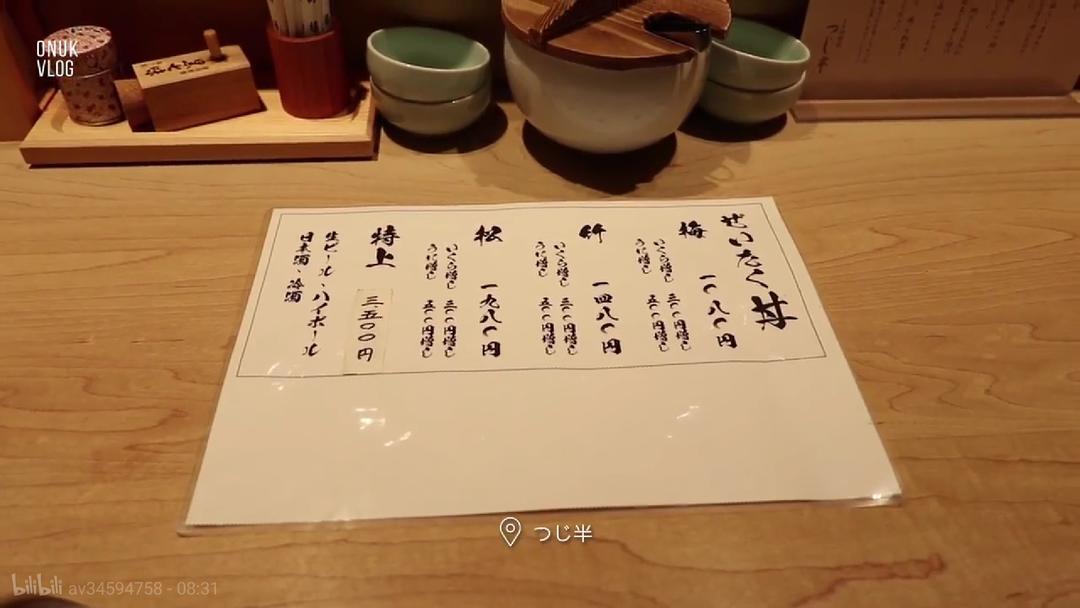 ONUK
VLOG
ぜいたく丼
梅 一〇八〇円
いくら増し 三〇〇円増し
うに増し 五〇〇円増し
竹 一四八〇円
いくら増し 三〇〇円増し
うに増し 五〇〇円増し
松 一九八〇円
いくら増し 三〇〇円増し
うに増し 五〇〇円増し
特上 三、五〇〇円
生ビール、ハイボール
日本酒、冷酒
つじ半
bilibili av34594758 - 08:31